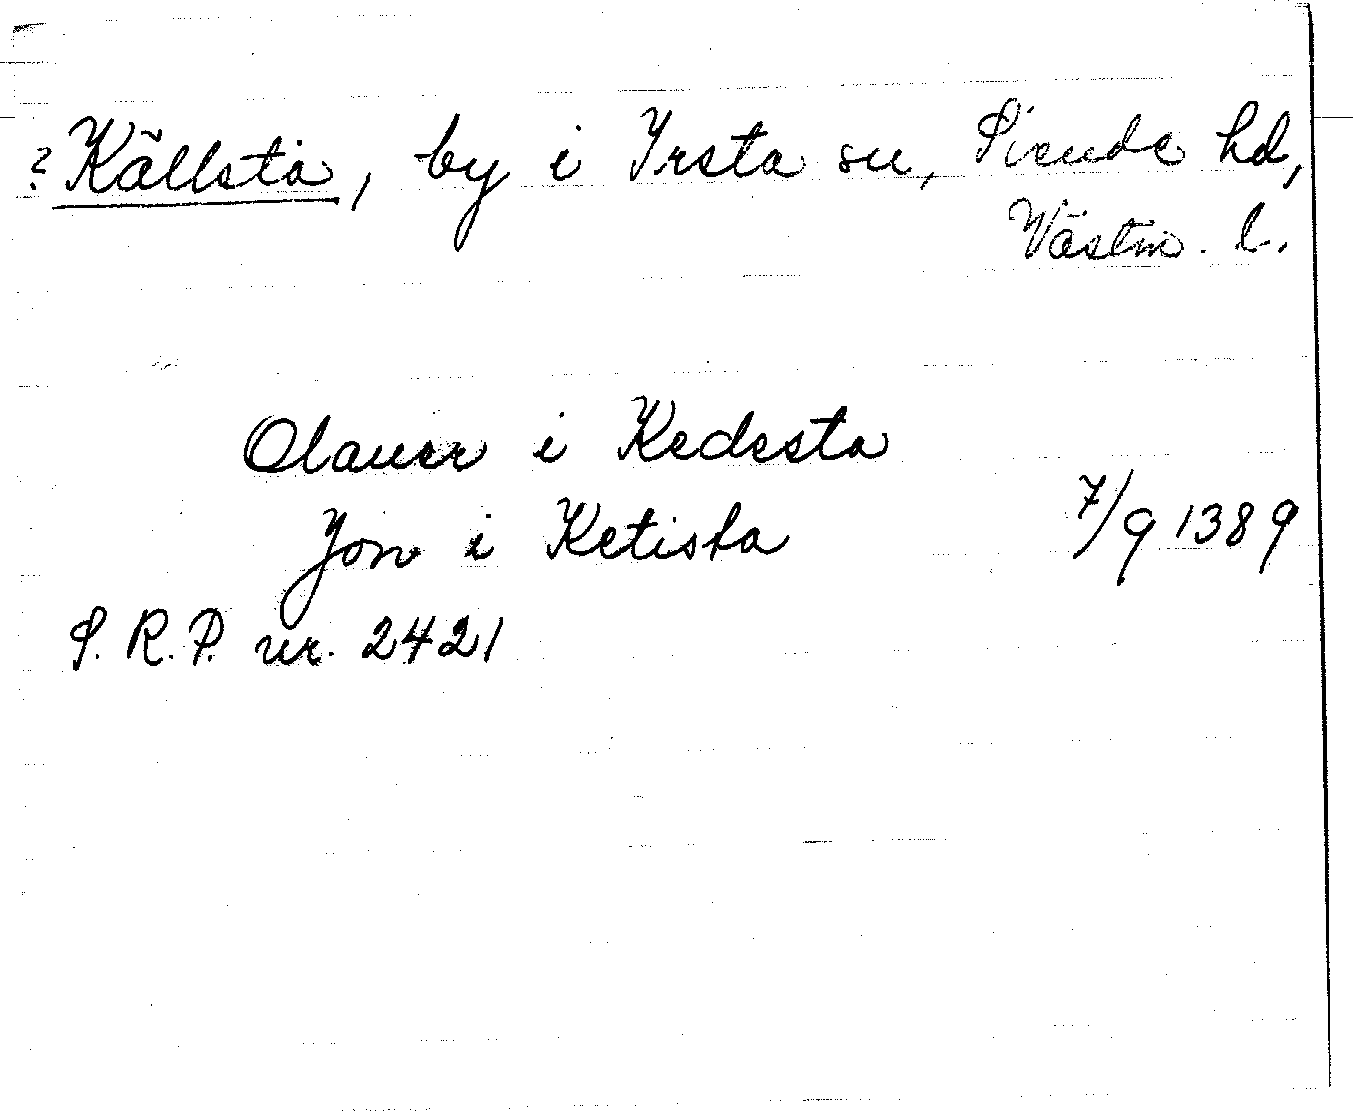 ? Källsta, by i Irsta sn, Siende hd,
Västm. l.
Olauer i Kedesta
Jon i Ketista 7/9 1389
S. R. P. nr. 2421